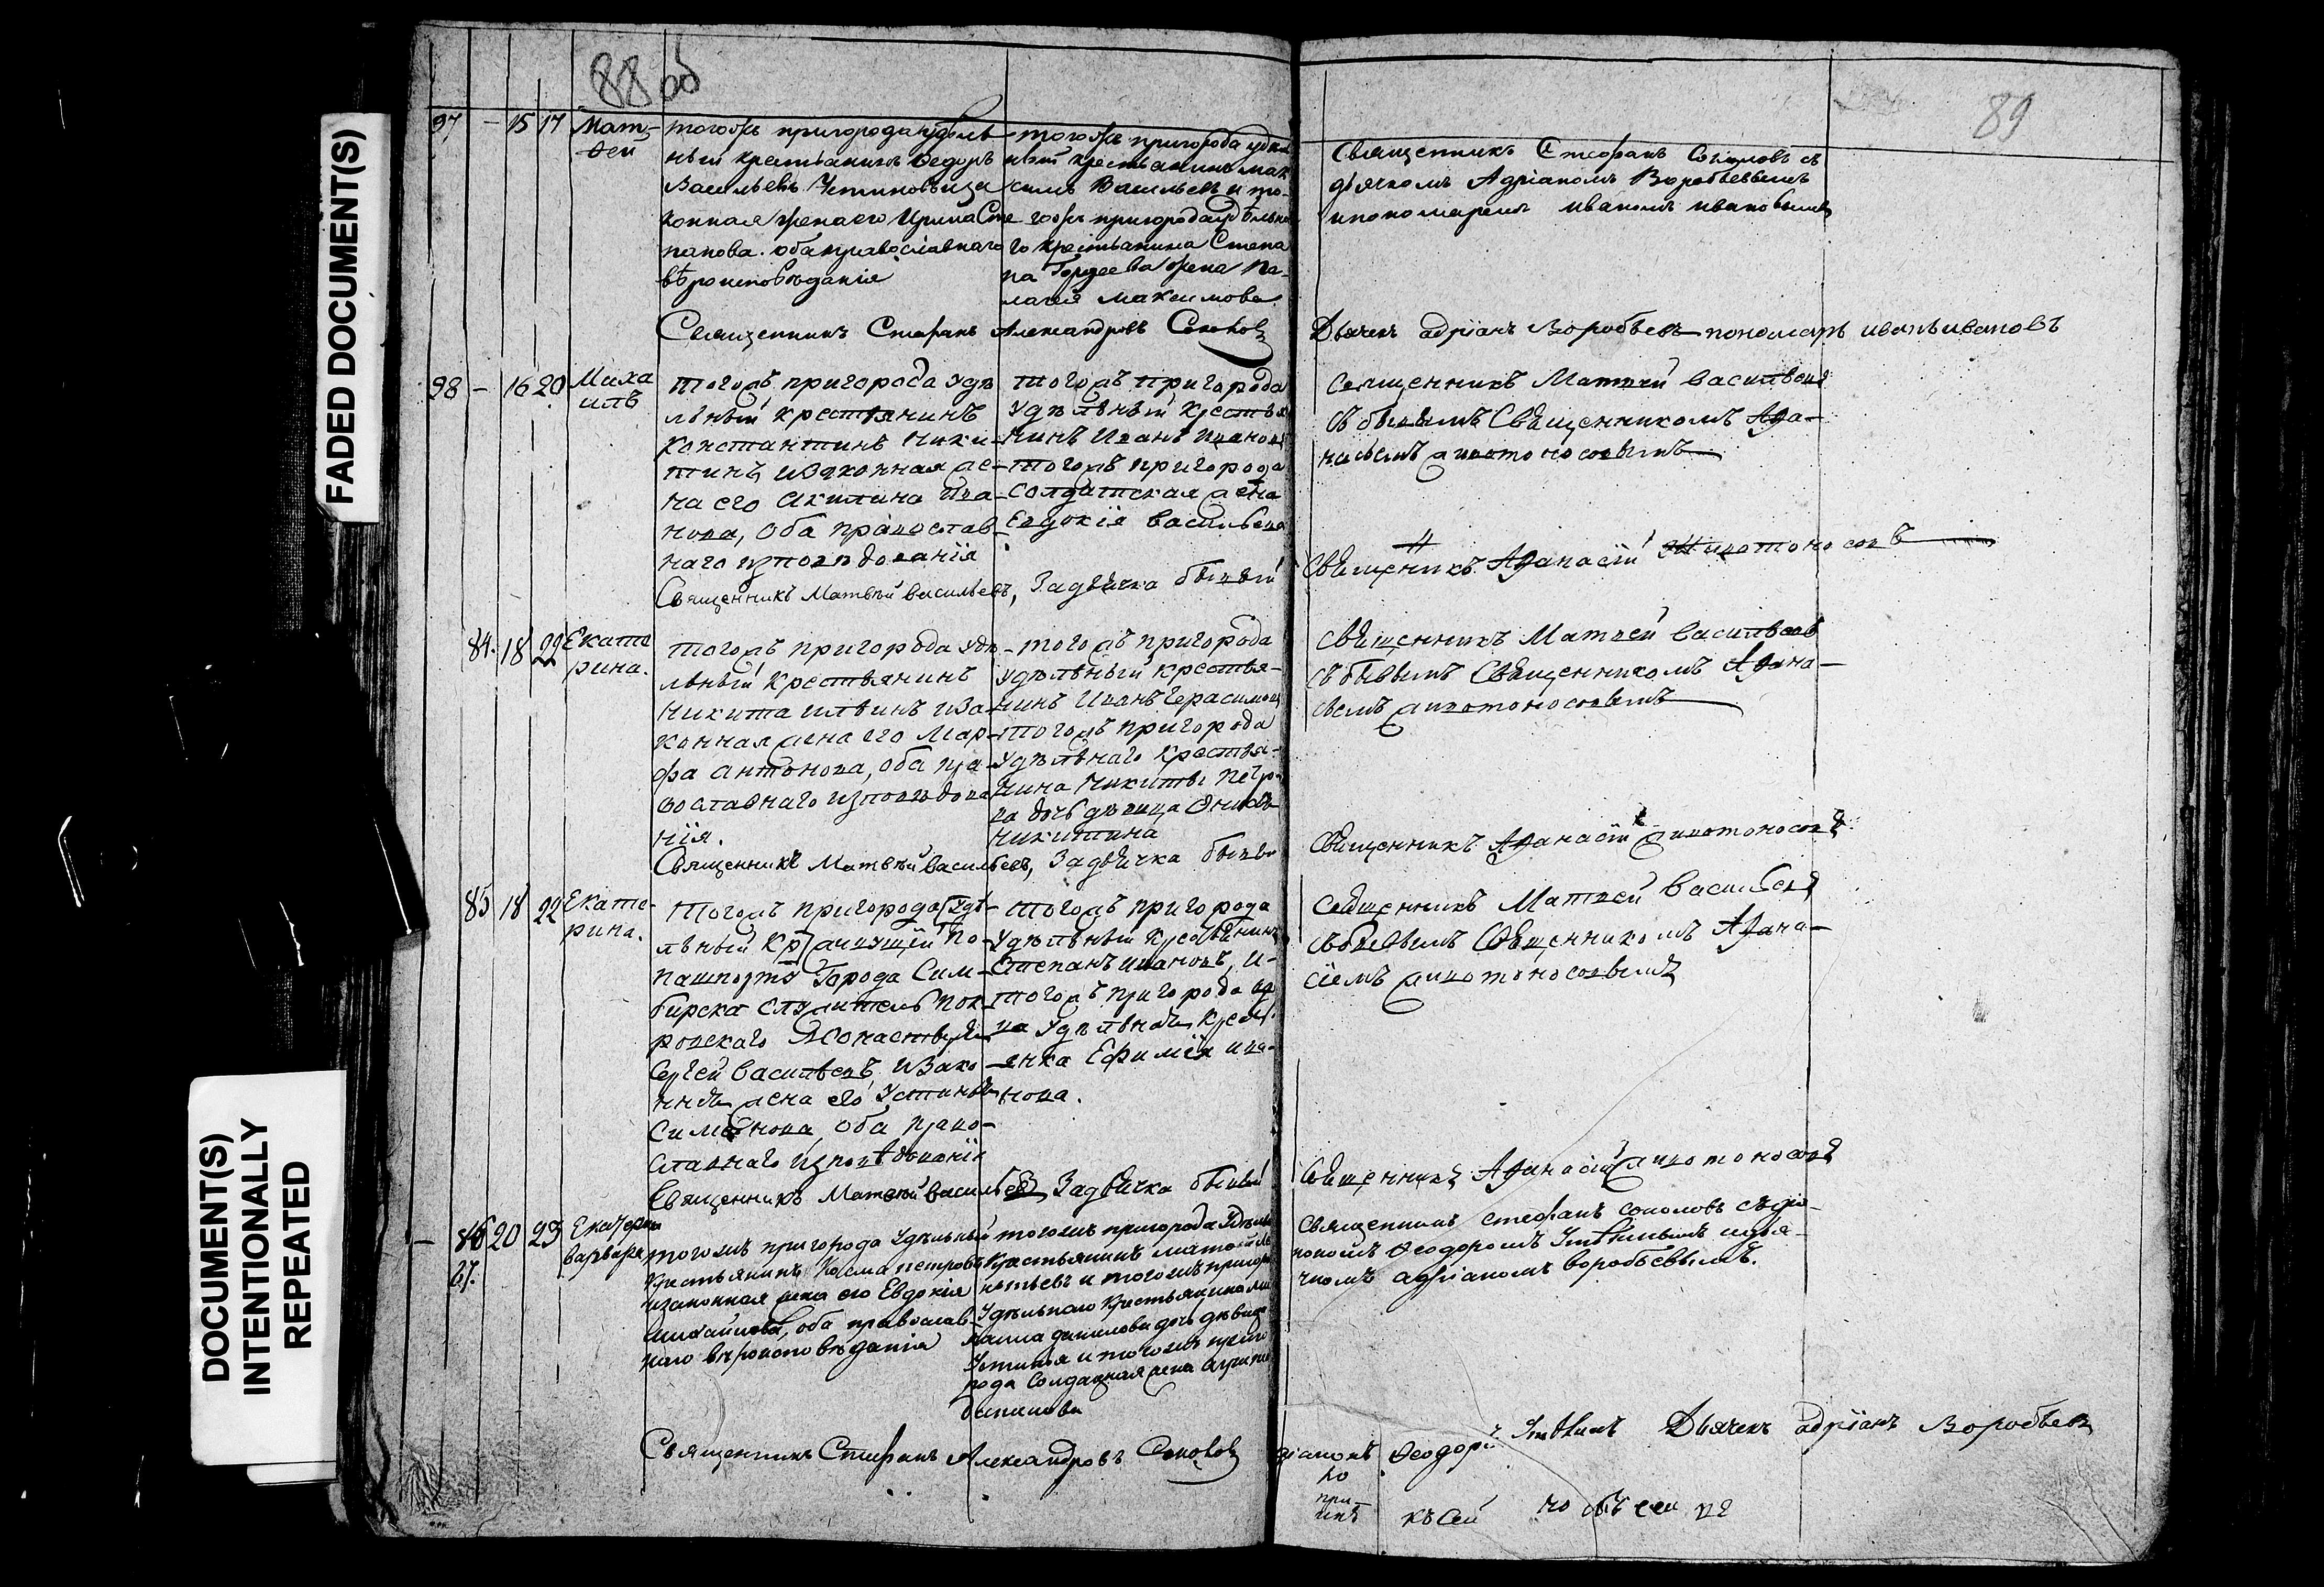 88 об
89
FADED DOCUMENT(S)
DOCUMENT(S)
INTENTIONALLY
REPEATED
97 - 15 17 Мат-
ѳей
тогожъ пригорода удѣль
ный крестьянинъ Ѳедоръ
Васильевъ и за
конная жена его Ирина Сте
панова. оба православнаго
вѣроисповѣданія
тогожъ пригорода удѣль
ный крестьянинъ Мак
симъ Васильевъ и то-
гожъ пригорода удѣльна
го крестьянина Степа
на Гордеева жена Пе-
лагея Максимова.
Священникъ Стефанъ Соколовъ съ
дьячкомъ Адріаномъ Воробьевымъ
и пономаремъ Иваномъ Ивановымъ
Священникъ Стефанъ Александровъ Соколовъ Дьячекъ адріанъ Воробьевъ пономарь иванъ ивановъ
98 - 16 20 Миха
илъ
тогожъ пригорода удѣ
льный крестьянинъ
Константинъ Ники-
тинъ, изаконная же-
на его Акилина Ива-
нова, оба православ-
наго исповѣдованія
тогожъ пригорода
удѣльный крестья
нинъ Иванъ Ивановъ
тогожъ пригорода
солдатская жена
Евдокія Васильева
Священникъ Матвей Васильевъ
съ бывымъ Священникомъ Аѳа-
насьемъ Животоносовымъ
Священникъ Матвѣй Васильевъ, За дьячка бывый Священникъ Аѳанасій Животоносовъ
84. 18 22 Екате
рина.
тогожъ пригорода удѣ-
льный крестьянинъ
Никита Ильинъ иза-
конная жена его Мар-
фа Антонова, оба пра-
вославнаго исповѣдова
нія.
тогожъ пригорода
удѣльный крестья-
нинъ Иванъ Герасимовъ
тогожъ пригорода
удѣльнаго крестья-
нина Никиты Петро-
ва дочь дѣвица
Никитина
Священникъ Матвей Васильевъ
съ бывымъ Священникомъ Аѳана-
сьемъ Животоносовымъ
Священникъ Матвѣй Васильевъ, За дьячка бывы Священникъ Аѳанасій Животоносовъ
85 18 22 Екате-
рина.
тогожъ пригорода удѣ-
льный Кр живущій по
пашпорту Города Сим-
бирска служитель Пок-
ровскаго Монастыря
Сергей Васильевъ, изако-
нная жена его Устинья
Симеонова, оба право-
славнаго исповѣдованія
тогожъ пригорода
удѣльный крестьянинъ
Степанъ Ивановъ, и-
тогожъ пригорода вдо
ва удѣльная крест
янка Ефимія Ива-
нова.
Священникъ Матвей Васильевъ
съ бывымъ Священникомъ Аѳана-
сіемъ Животоносовымъ
Священникъ Матвѣй Васильевъ За дьячка бывый Священникъ Аѳанасій Животоносовъ
- 86 20 23 Екатерина
87. варвара
тогожъ пригорода Удѣльный
крестьянинъ Косма Петровъ
изаконная жена его Евдокія
Михайлова, оба православ-
наго вѣроисповѣданія
тогожъ пригорода Удѣльный
крестьянинъ
и тогожъ приго
Удѣльнаго крестьянина
данилова дочь дѣвица
Устинья и тогожъ приго
рода солдатская жена
Священникъ стефанъ соколовъ съ діа-
кономъ Ѳеодоромъ и дья-
чкомъ адріаномъ воробьевымъ.
Священникъ Стефанъ Александровъ Соколовъ діаконъ Ѳеодоръ Дьячекъ адріанъ Воробьевъ
къ сей